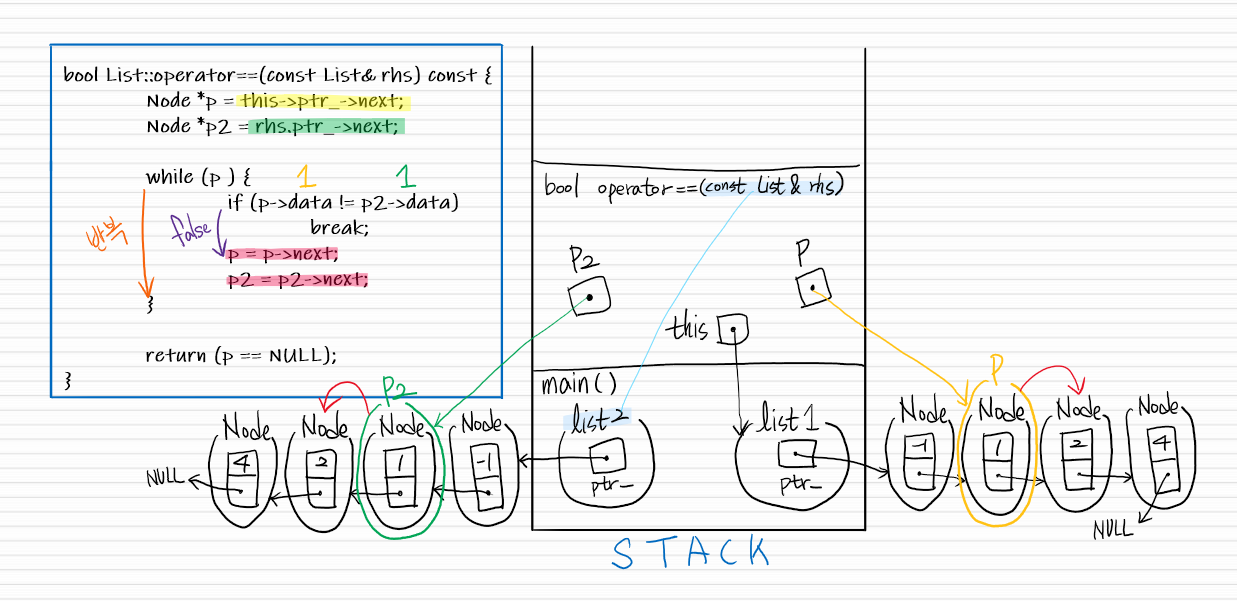 bool List::operator==(const List& rhs) const {
Node *p = this->ptr_->next;
Node *p2 = rhs.ptr_->next;
while (p ) {
1 1
if (p->data != p2->data)
break;
반복
false
p = p->next;
p2 = p2->next;
}
return (p == NULL);
}
bool operator==(const List & rhs)
P2
P
this
main()
list2
ptr_
list1
ptr_
P2
Node
4
Node
2
Node
1
Node
-1
NULL
P
Node
-1
Node
1
Node
2
Node
4
NULL
STACK